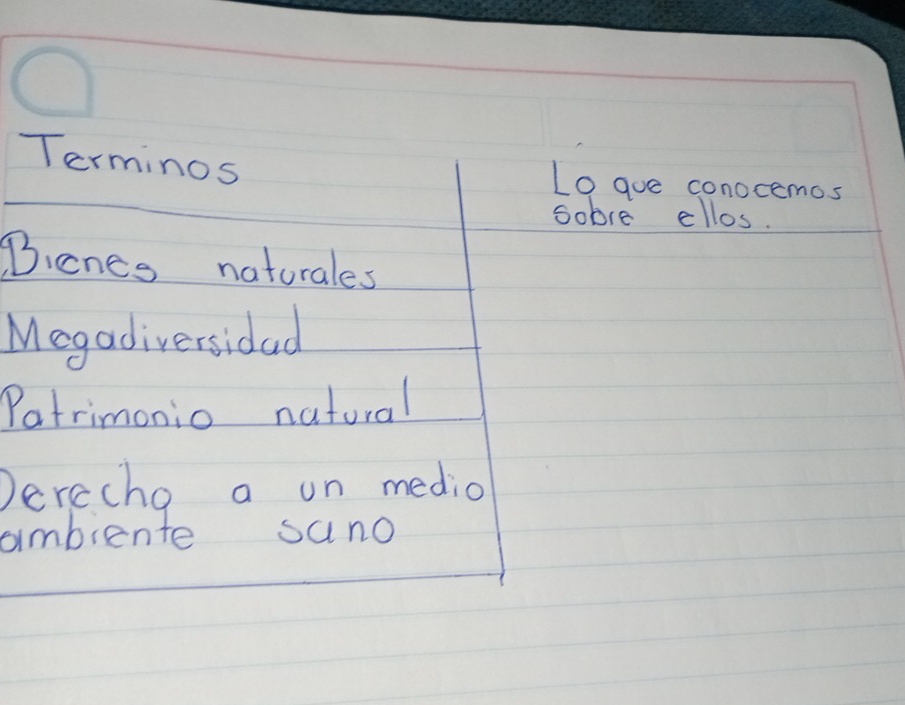 Terminos
Lo que conocemos
sobre ellos.
Bienes naturales
Megadiversidad
Patrimonio natural
Derecho a un medio
ambiente sano